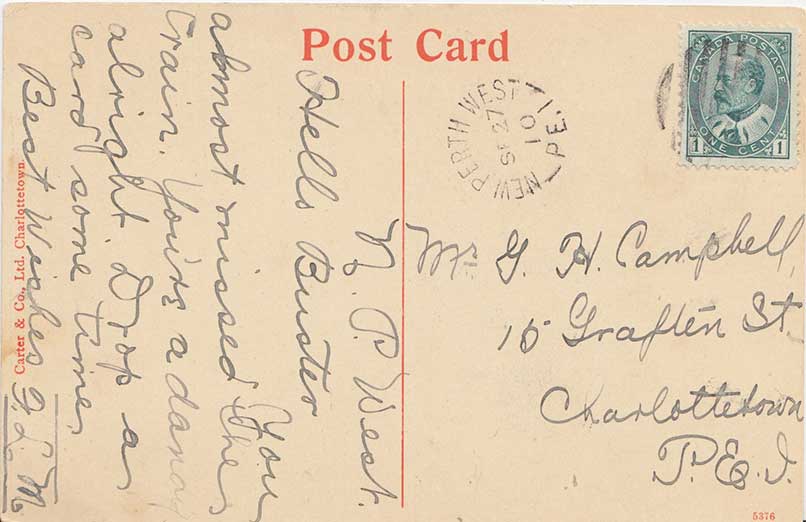 Post Card
CANADA POSTAGE
1 ONE CENT 1
NEW PERTH WEST
SP 27
10
P.E.I.
N. P. West.
Hello Buster
You
almost missed the
train. Yours a dandy
alright. Drop a
card some time,
Best Wishes G. L. M.
Mr. G. H. Campbell,
15 Graften St.
Charlottetown
P.E.I.
Carter & Co., Ltd. Charlottetown.
5376